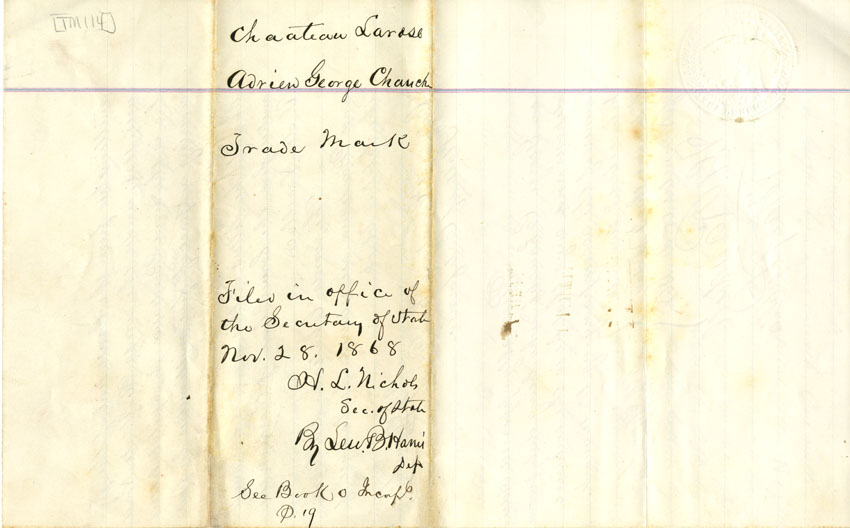 [TM114]
Chaateau Larose
Adrien George Chauch
Trade Mark
Filed in office of
the Secretary of State
Nov. 28. 1868
H. L. Nichols
Sec. of State
By Lew. B Harris
Dep
See Book o Incorp.
P. 19